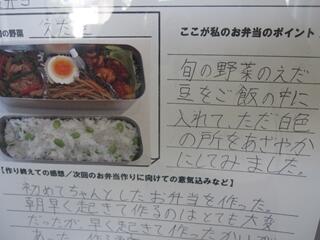 弁当
旬の野菜 えだ豆
ここが私のお弁当のポイント
旬の野菜のえだ
豆をご飯の中に
入れて、ただ白色
の所をあざやか
にしてみました。
【作り終えての感想／次回のお弁当作りに向けての意気込みなど】
初めてちゃんとしたお弁当を作った。
朝早く起きて作るのはとても大変
だったが早く起きて作ったかいが